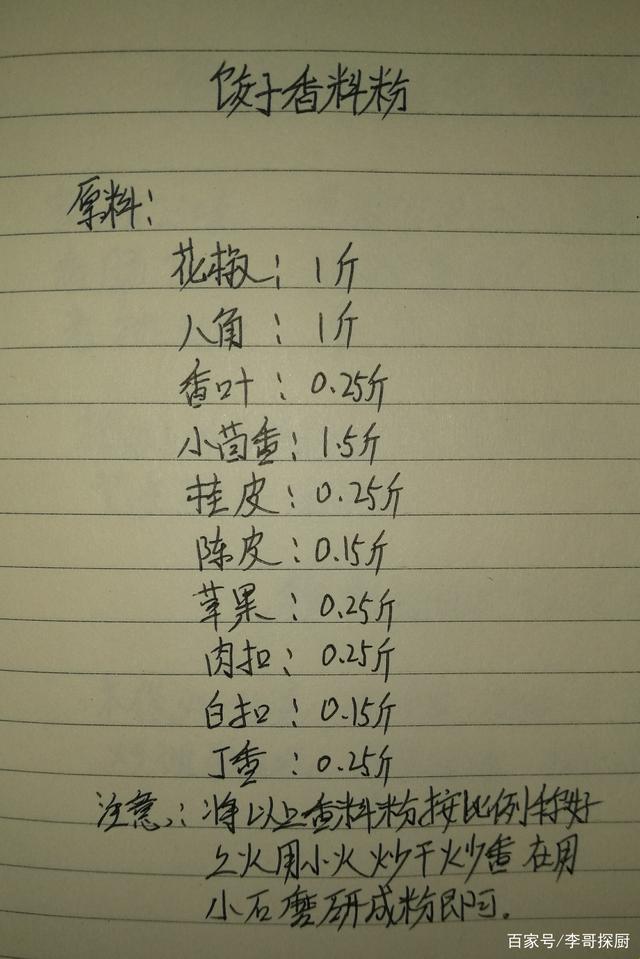 饺子香料粉
原料:
花椒: 1斤
八角: 1斤
香叶: 0.25斤
小茴香: 1.5斤
桂皮: 0.25斤
陈皮: 0.15斤
草果: 0.25斤
肉扣: 0.25斤
白扣: 0.15斤
丁香: 0.25斤
注意: 将以上香料粉按比例称好
上火用小火炒干炒香在用
小石磨研成粉即可.
百家号/李哥探厨